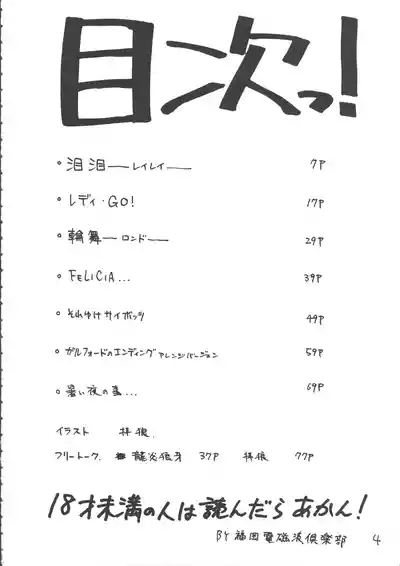 目次っ!
○ 泪泪 ― レイレイ ― 7P
○ レディ・GO! 17P
○ 輪舞 ― ロンド ― 29P
○ FELICIA... 39P
○ それゆけサイボッツ 49P
○ ガルフォードのエンディングアレンジバージョン 59P
○ 暑い夜の事... 69P
イラスト 林狼.
フリートーク. 龍炎狼牙 37P 林狼 77P
18才未満の人は読んだらあかん!
BY 福田電磁波倶楽部 4